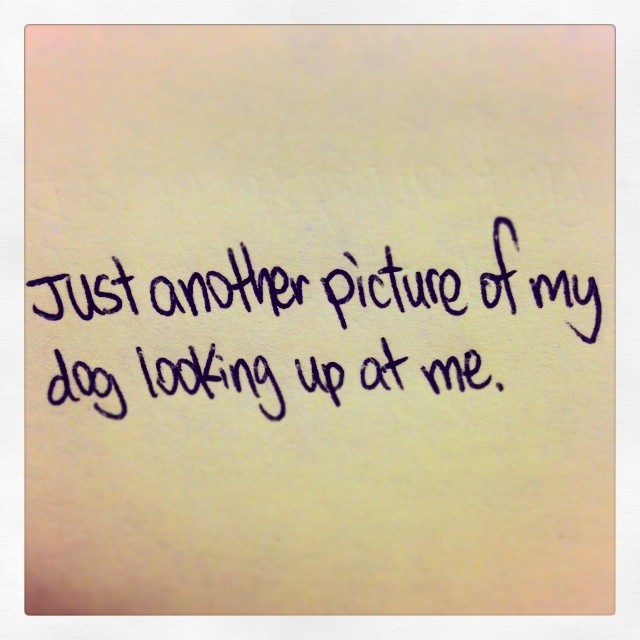 Just another picture of my
dog looking up at me.